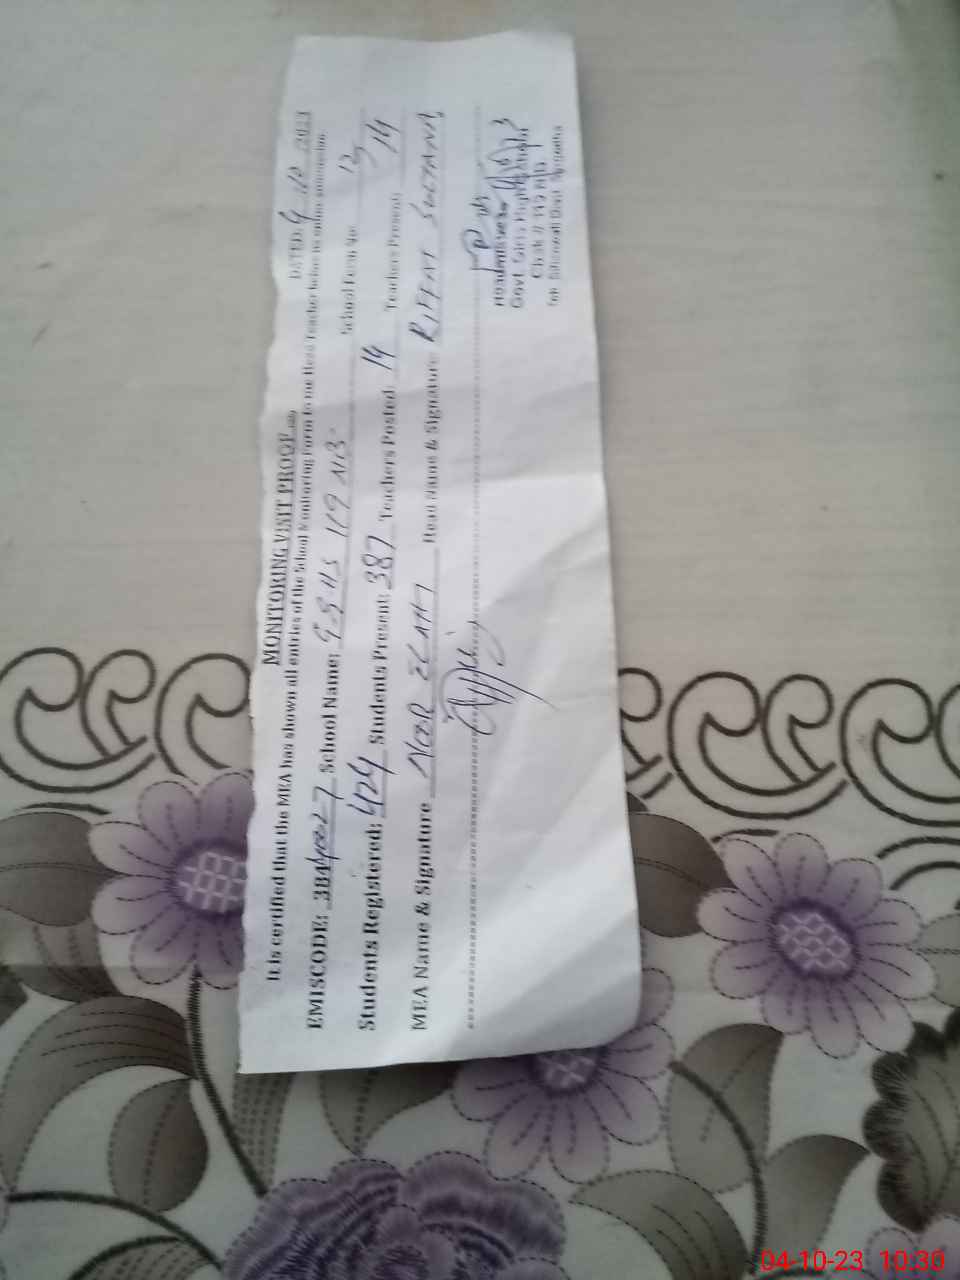 MONITORING VISIT PROOF
DATED: 4 -10- 2023
It is certified that the MEA has shown all entries of the School Monitoring Form to me Head Teacher before its online submission
EMISCODE: 38440027 School Name: G.G.HS 119 NB School Form No: 13
Students Registered: 424 Students Present: 387 Teachers Posted: 14 Teachers Present: 14
MEA Name & Signature NOOR ELAHI Head Name & Signature RIFFAT SULTANA
Headmistress
Govt. Girls High School
Chak # 119 N/B
Teh: Sillanwali Distt. Sargodha
04-10-23 10:30